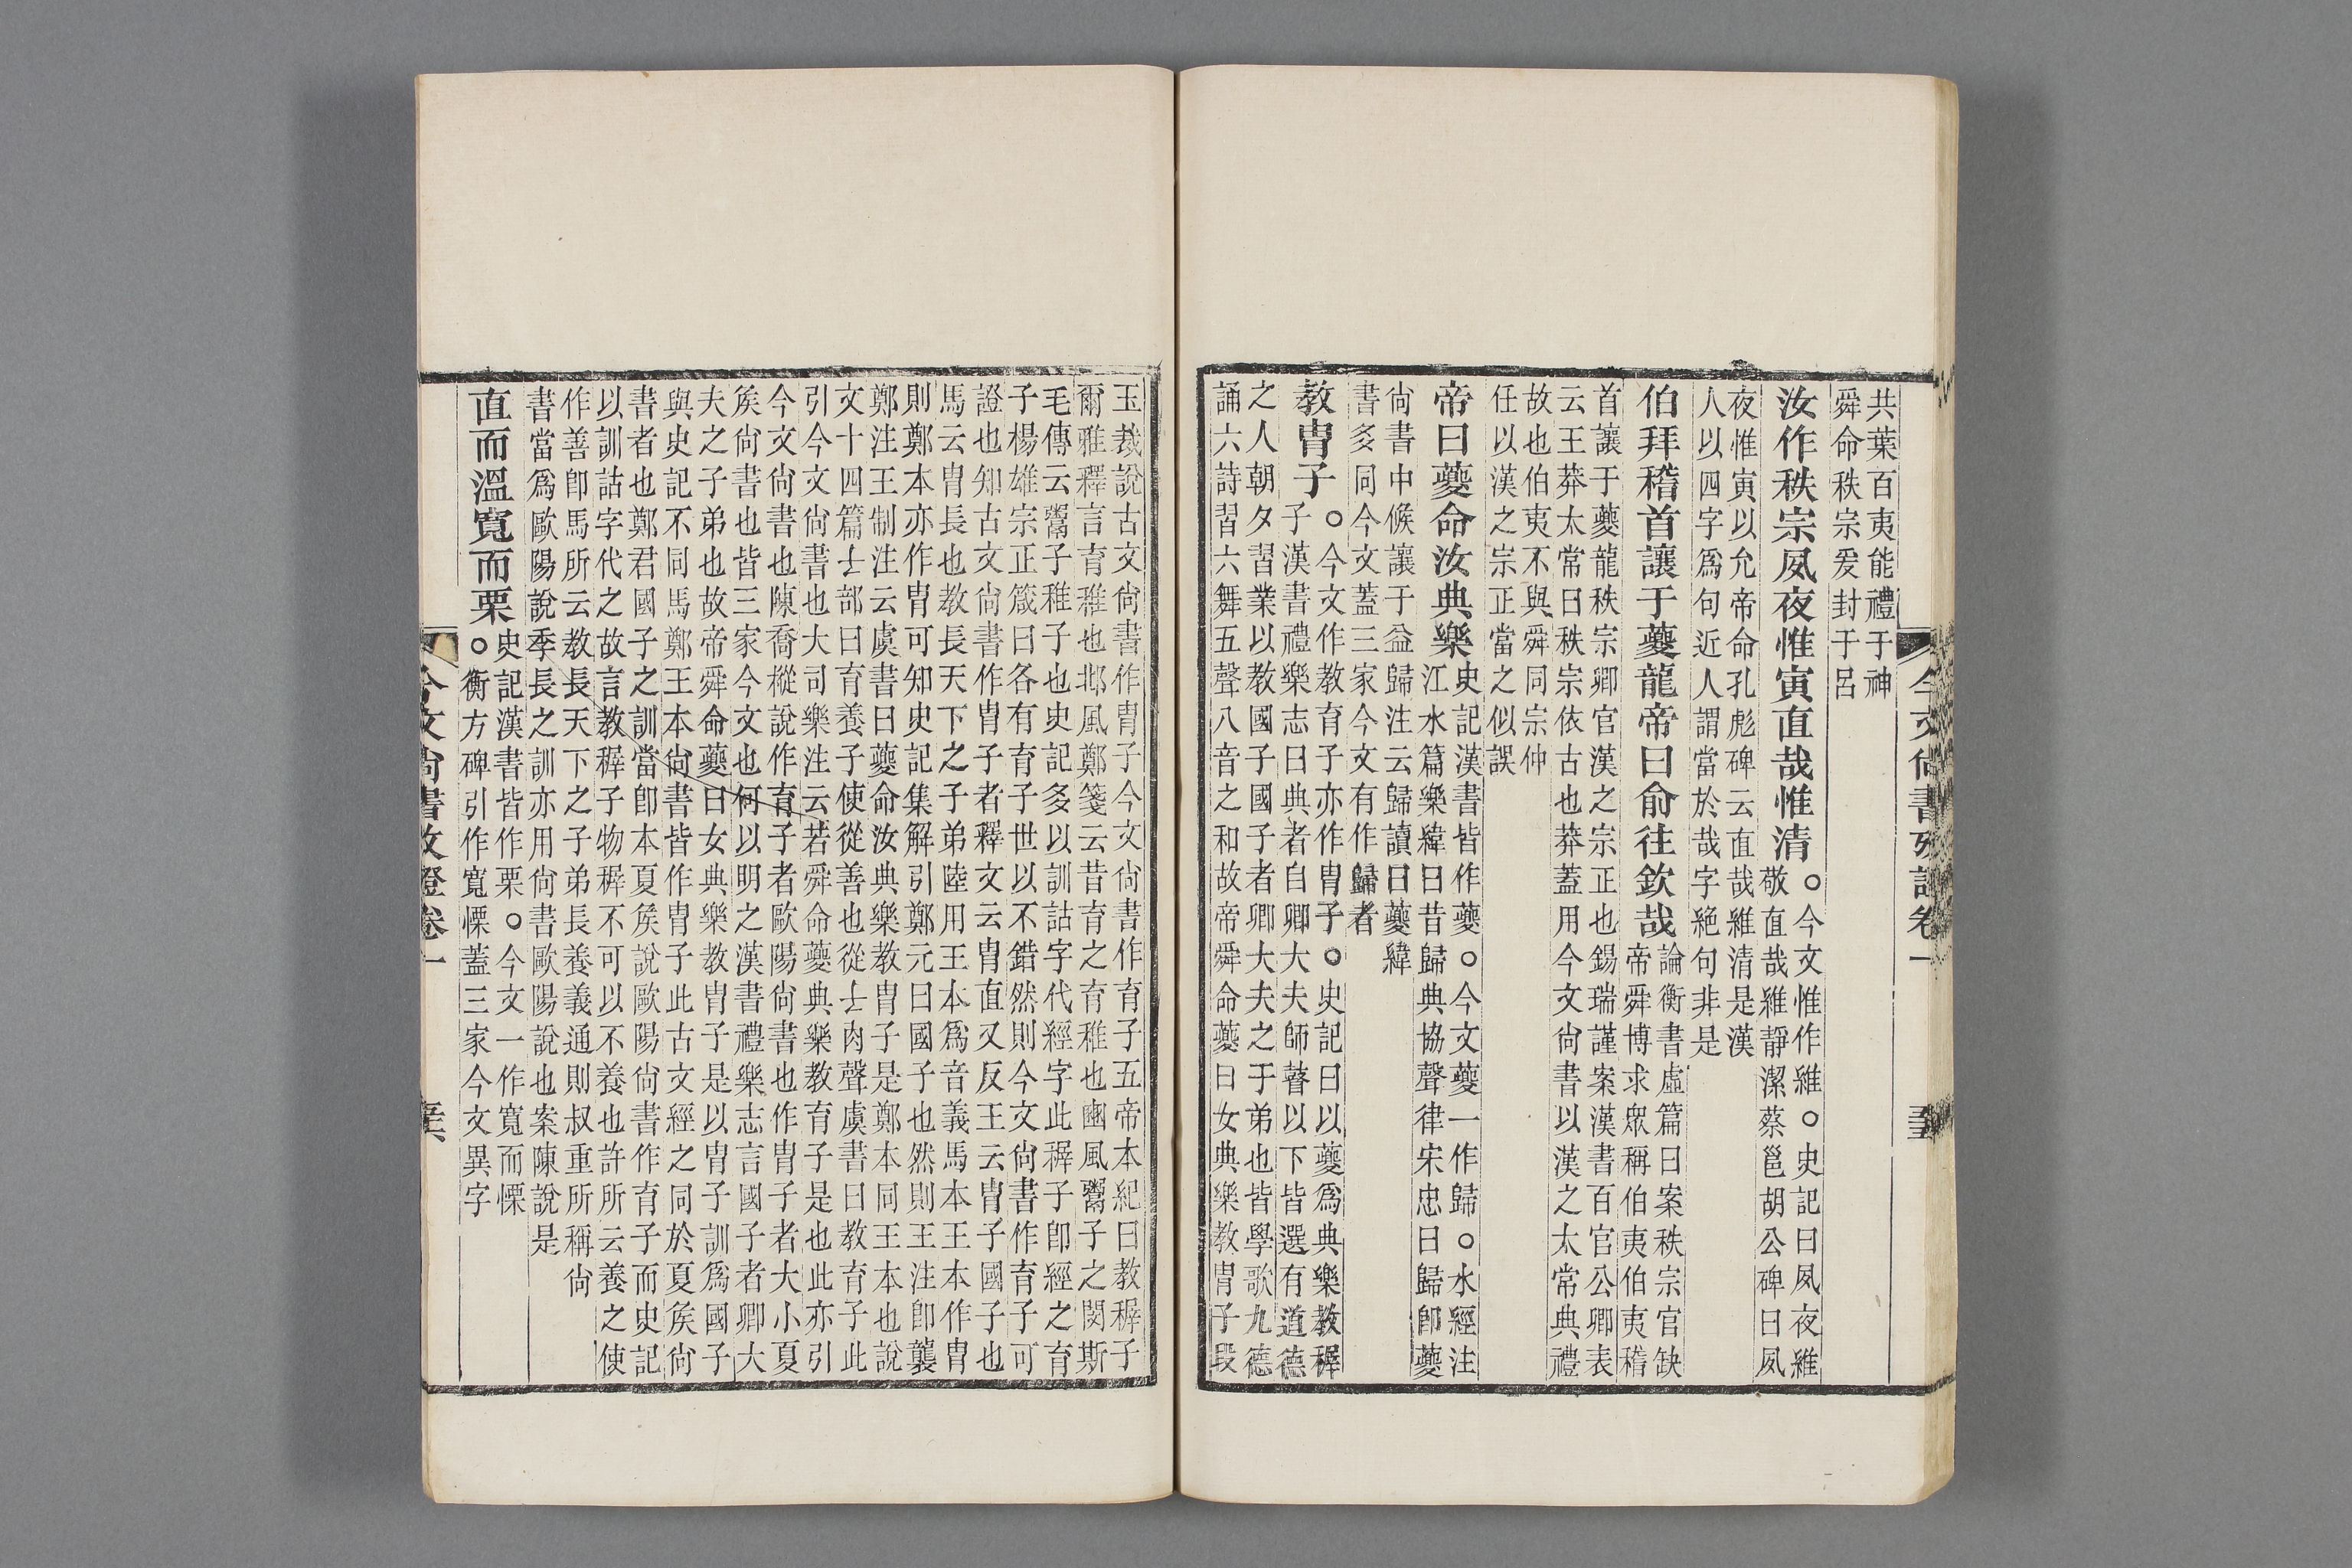 共葉百夷能禮于神
舜命秩宗爰封于呂
汝作秩宗夙夜惟寅直哉惟清
○今文惟作維○史記曰夙夜維
敬直哉維靜潔蔡邕胡公碑曰夙
夜惟寅以允帝命孔彪碑云直哉維清是漢
人以四字爲句近人謂當於哉字絶句非是
伯拜稽首讓于夔龍帝曰俞往欽哉
論衡書虛篇曰案秩宗官缺
帝舜博求眾稱伯夷伯夷稽
首讓于夔龍秩宗卿官漢之宗正也錫瑞謹案漢書百官公卿表
云王莽太常曰秩宗依古也莽蓋用今文尙書以漢之太常典禮
故也伯夷不與舜同宗仲
任以漢之宗正當之似誤
帝曰夔命汝典樂
史記漢書皆作夔○今文夔一作歸○水經注
江水篇樂緯曰昔歸典協聲律宋忠曰歸卽夔
尙書中候讓于益歸注云歸讀曰夔緯
書多同今文蓋三家今文有作歸者
教胄子
○今文作教育子亦作胄子○史記曰以夔爲典樂教稺
子漢書禮樂志曰典者自卿大夫師瞽以下皆選有道德
之人朝夕習業以教國子國子者卿大夫之子弟也皆學歌九德
誦六詩習六舞五聲八音之和故帝舜命夔曰女典樂教胄子段
今文尙書攷證卷一
玉裁說古文尙書作胄子今文尙書作育子五帝本紀曰教稺子
爾雅釋言育稚也邶風鄭箋云昔育之育稚也豳風鬻子之閔斯
毛傳云鬻子稚子也史記多以訓詁字代經字此稺子卽經之育
子楊雄宗正箴曰各有育子世以不錯然則今文尙書作育子可
證也知古文尙書作胄子者釋文云胄直又反王云胄子國子也
馬云胄長也教長天下之子弟陸用王本爲音義馬本王本作胄
則鄭本亦作胄可知史記集解引鄭元曰國子也然則王注卽襲
鄭注王制注云虞書曰夔命汝典樂教胄子是鄭本同王本也說
文十四篇𠫓部曰育養子使從善也從𠫓肉聲虞書曰教育子此
引今文尙書也大司樂注云若舜命夔典樂教育子是也此亦引
今文尙書也陳喬樅說作育子者歐陽尙書也作胄子者大小夏
矦尙書也皆三家今文也何以明之漢書禮樂志言國子者卿大
夫之子弟也故帝舜命夔曰女典樂教胄子是以胄子訓爲國子
與史記不同馬鄭王本尙書皆作胄子此古文經之同於夏矦尙
書者也鄭君國子之訓當卽本夏矦說歐陽尙書作育子而史記
以訓詁字代之故言教稺子物稺不可以不養也許所云養之使
作善卽馬所云教長天下之子弟長養義通則叔重所稱尙
書當爲歐陽說季長之訓亦用尙書歐陽說也案陳說是
直而溫寬而栗
史記漢書皆作栗○今文一作寬而慄
○衡方碑引作寬慄蓋三家今文異字
今文尙書攷證卷一